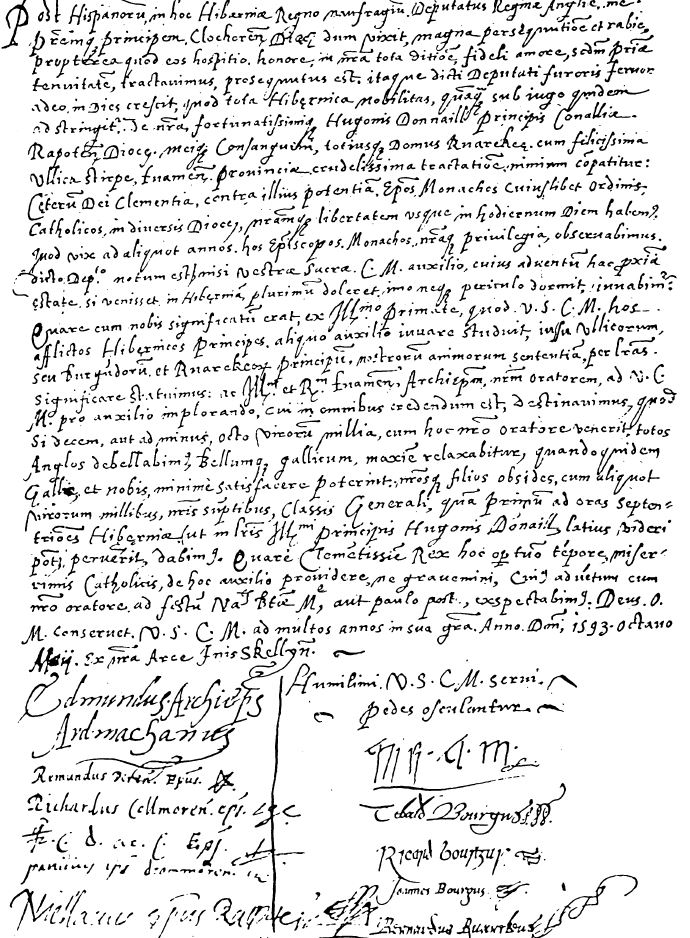 Post Hispanorū in hoc Hiberniæ Regno naufragiū, Deputatus Reginæ Angliæ, me
principem, Clocheren̄ Dioc̄ dum vixit, magna persequutiōe et rabie,
propterea quod eos hospitio, honore, in nr̄a tota ditiōe, fideli amore, scdm̄ priā
tenuitatē, tractavimus, prosequutus est. itaque dicti Deputati furoris fervor
adeo in Dies crescit, quod tota Hibernica nobilitas, sub iugo quidem
adstringit. de nr̄a, fortunatissimiq̄ Hugonis Donnaill Principis Conalliæ
Rapoten̄ Dioce, meiq̄ Consanguin̄, totiusq̄ Domus Ruarckeq̄, cum felicissima
Ullica stirpe, Tuamen̄ Provinciæ crudelissima tractatiōe, nimium cōpatitur:
Ceterū Dei Clementia, contra illius potentiā, Ep̄os, Monachos Cuiuslibet Ordinis,
Catholicos, in diversis Dioces, nr̄amq̄ libertatem usque in hodiernum Diem habem9.
Quod vix ad aliquot annos, hos Ep̄iscopos, Monachos, nr̄aq̄ privilegia, observabimus,
dicto Dep.to notum est, nisi Vestræ Sacræ. C. M. auxilio, cuius adventū hac
estate, si venisset in Hiberniā, plurimum doleret, imo neq̄ periculo dormit,
Quare cum nobis significatū erat, ex Ill.mo Primate, quod V. S. C. M. hos
afflictos Hibernicos Principes, aliquo auxilio iuvare studuit, iussu Ullicorum,
seu Burgudorū, et Ruarckeorq̄ Principū, nostrorum animorum sententiā, per lr̄as
significare statuimus: ac Ill.m et R.m Tuamen̄ Archiep̄m, nr̄m oratorem, ad V. C
M. pro auxilio implorando, cui in omnibus credendum est, destinavimus, quod
Si decem, aut ad minus, octo virorū millia, cum hoc nr̄o oratore venerit, totos
Anglos debellabim9, Bellumq̄ gallicum, maxiē relaxabitur, quandoquidem
Galliæ, et nobis, minimè satisfacere poterint, nr̄osq̄ filios obsides, cum aliquot
virorum millibus, nr̄is sūptibus, Classis Generali, quā Primū ad oras Septen-
triōes Hiberniæ (ut in lr̄is Ill.mi principis Hugonis Donaill latius videri
pōt) pervenit, dabim9. Quare Clemētissiē Rex hoc opōtuno tēpore, miser-
rimis Catholicis, de hoc auxilio providere, ne gravemini, Cui9 advētum cum
nr̄o oratore, ad festū Na.tis Bt̄æ M.e, aut paulo post, exspectabim9. Deus. O.
M. Conservet. V. S. C. M. ad multos annos in sua gr̄a. Anno. Dn̄i, 1593. octavo
Maij. Ex nr̄a Arce Inis Skellyn̄.
Humilimi. V. S. C. M. servi.
Pedes osculantur.
Edmundus Archiep̄s
Ardmachanus
Remundus Ep̄us.
Richardus Cellmoren̄. ep̄s.
C. d. ac. C. Ep̄s.
ep̄s dromoren̄.
Niellanus ep̄us Rapoten̄
Tebald Bourgus
Ricard bourgus
Joannes Bourgus
Bernardus